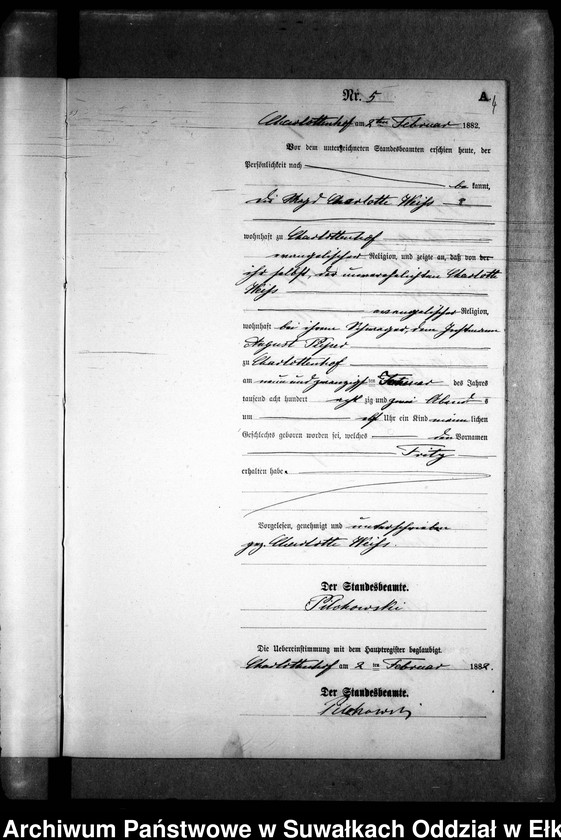 Nr. 5
A
4
Charlottenhof am 2ten Februar 1882.
Vor dem unterzeichneten Standesbeamten erschien heute, der
Persönlichkeit nach
be kannt,
die Magd Charlotte Weiss
wohnhaft zu Charlottenhof
evangelischer Religion, und zeigte an, daß von der
ihr selbst, der unverehelichten Charlotte
Weiss
evangelischer Religion,
wohnhaft bei ihrem Schwager, dem Instmann
August
zu Charlottenhof
am neun und zwanzigsten des Jahres
tausend acht hundert acht zig und zwei Abend s
um elf Uhr ein Kind männ lichen
Geschlechts geboren worden sei, welches den Vornamen
Fritz
erhalten habe.
Vorgelesen, genehmigt und unterschrieben
gez. Charlotte Weiss.
Der Standesbeamte.
Pilchowski
Die Uebereinstimmung mit dem Hauptregister beglaubigt.
Charlottenhof am 2 ten Februar 1882.
Der Standesbeamte.
Pilchowski
Archiwum Państwowe w Suwałkach Oddział w Ełk